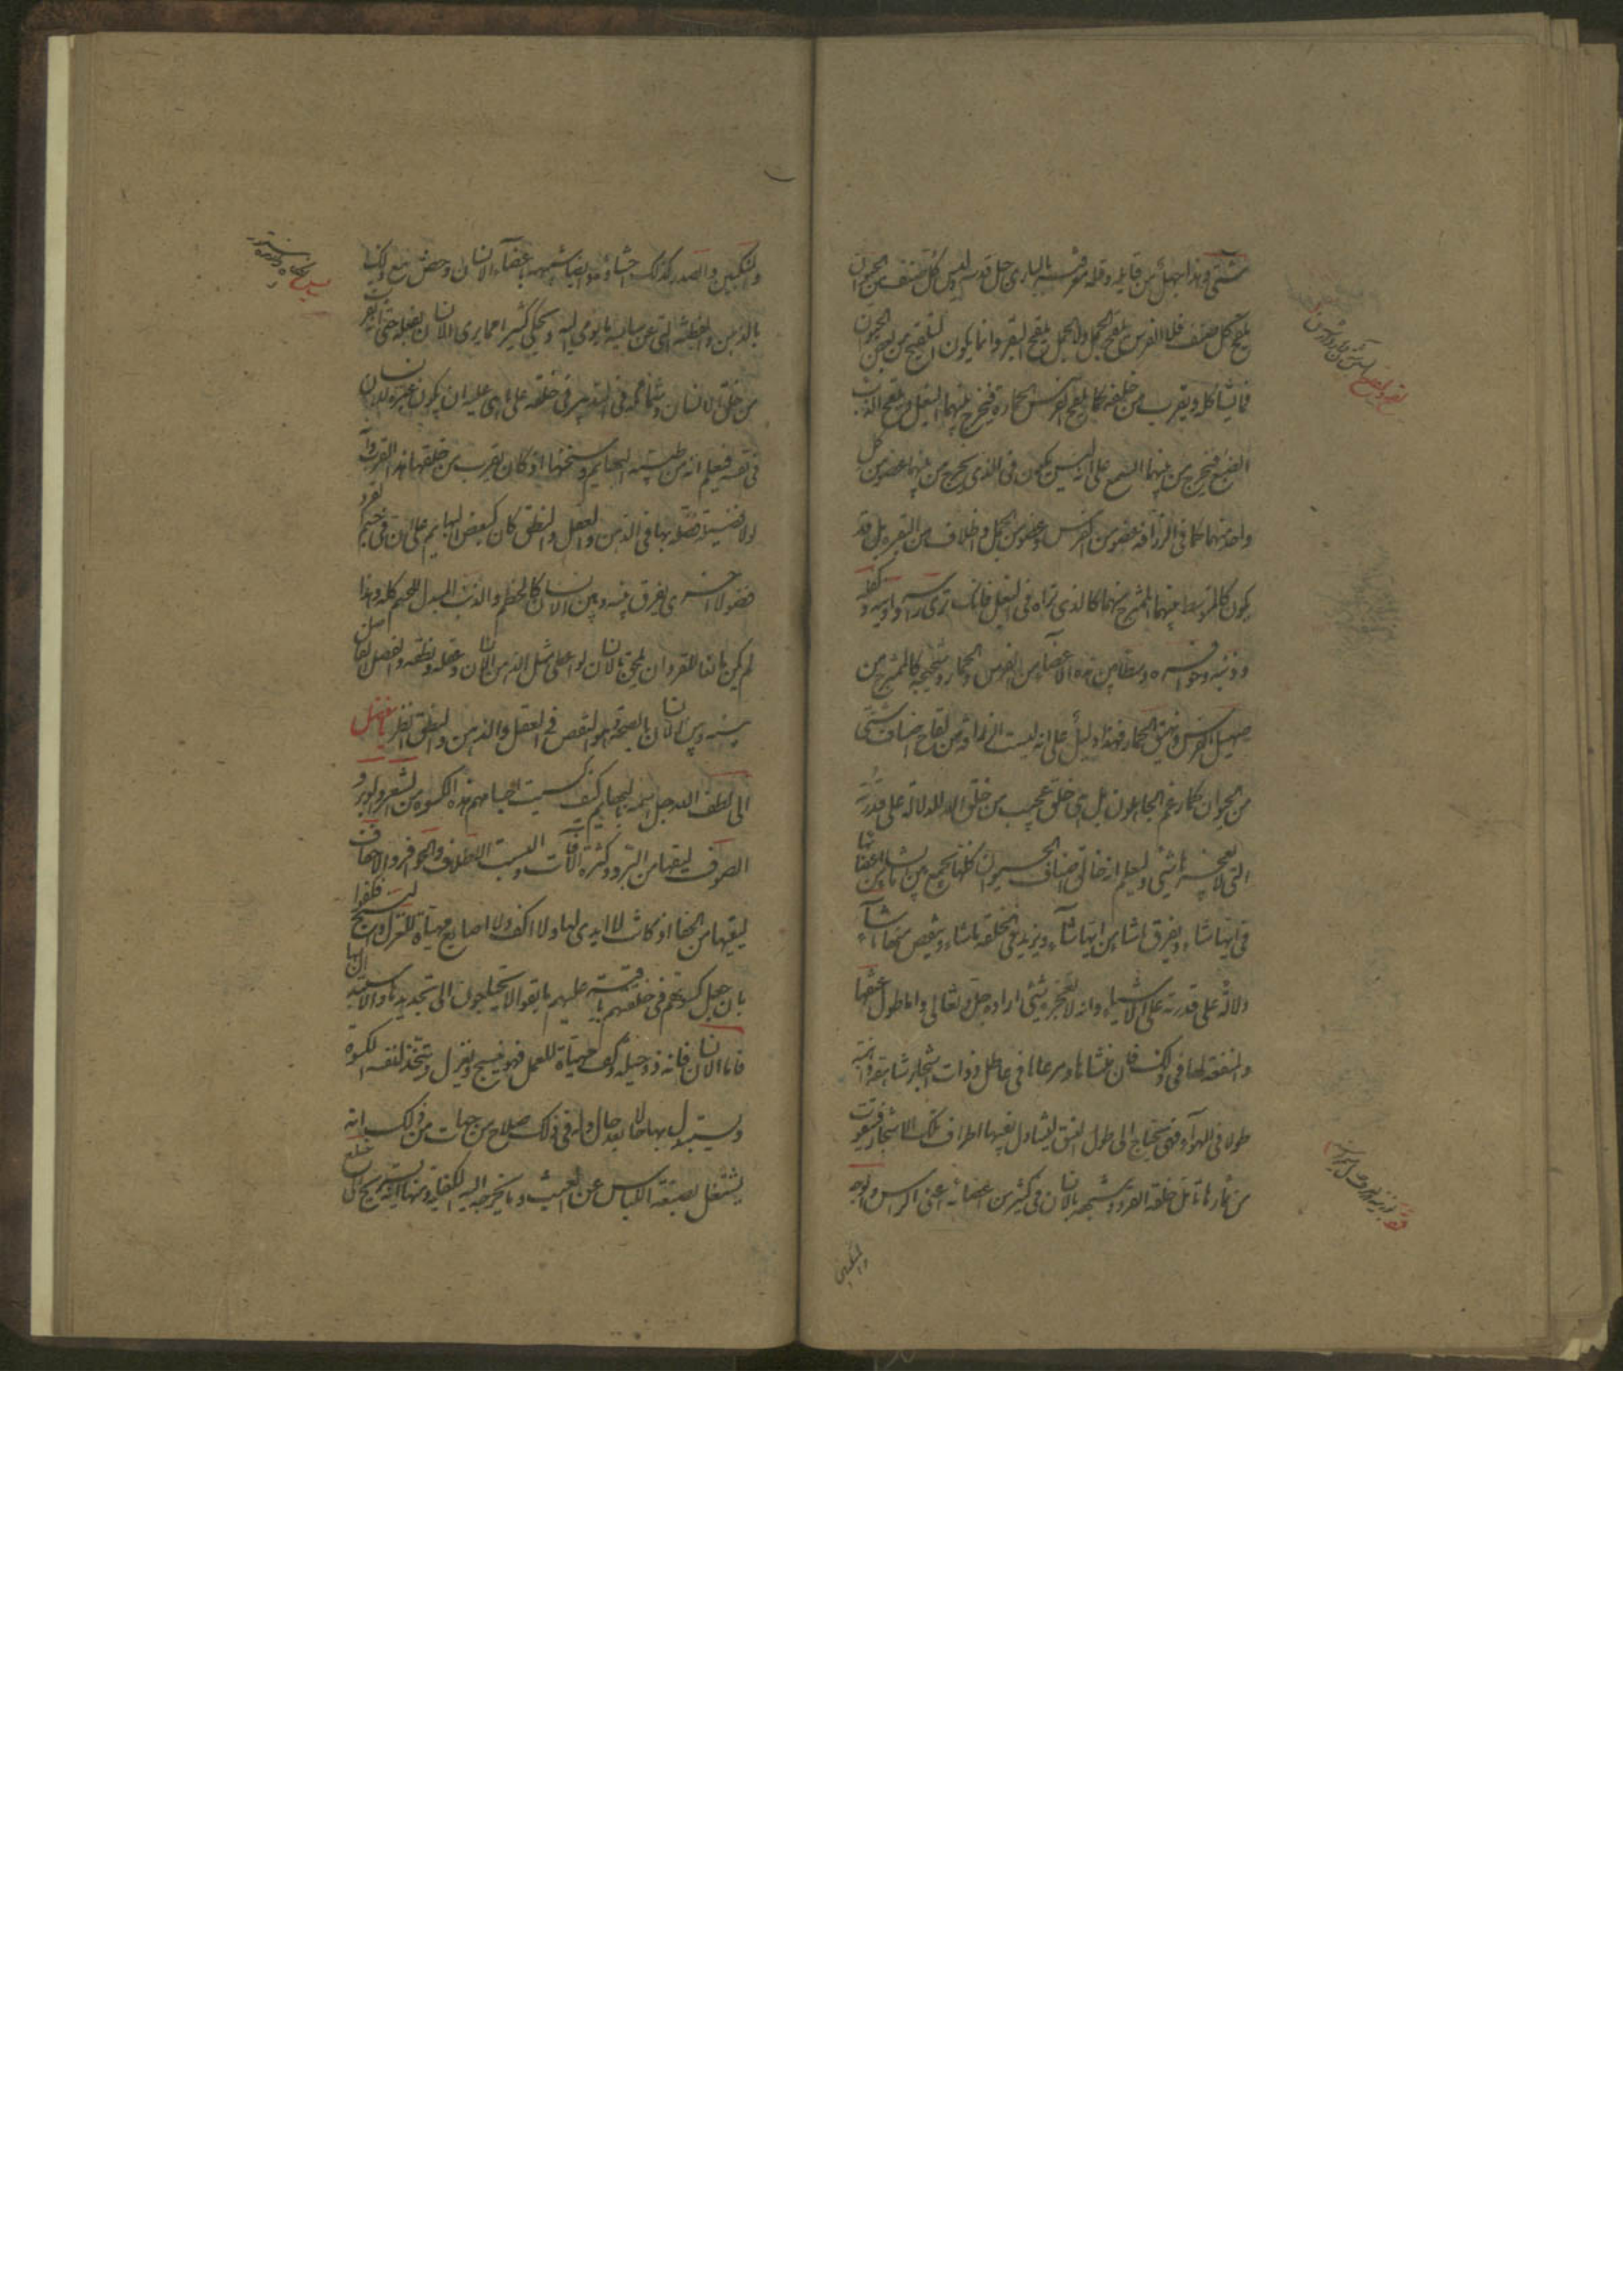 شتى وهذا جهل من قايله وقلة معرفته بالباري جل قدسه ليس كل صنف من الحيوان
يلقح كل صنف فلا الفرس يلقح الجمل ولا الجمل يلقح البقر وانما يكون التلقيح من بعض الحيوان
فيما يشاكله ويقرب من خلقه كما يلقح الفرس الحمارة فيخرج بينهما البغل ويلقح الذئب
الضبع فيخرج من بينهما السمع على انه ليس يكون في الذي يخرج من بينهما عضو من كل
واحد منهما كما في الزرافة عضو من الفرس وعضو من الجمل واظلاف من البقرة بل قد
يكون كالمتوسط بينهما الممتزج منهما كالذي تراه في البغل فانك ترى راسه واذنيه وكفله
وذنبه وحوافره وسطا بين هذه الاعضاء من الفرس والحمار وشحيجه كالممتزج من
صهيل الفرس ونهيق الحمار فهذا دليل على انه ليست الزرافة من لقاح اصناف شتى
من الحيوان كما زعم الجاهلون بل هي خلق عجيب من خلق الله للدلالة على قدرته
التي لا يعجزها شي وليعلم انه خالق اصناف الحيوان كلها يجمع بين ما يشاء من اعضائها
في ايها شاء ويفرق ما شاء من ايها شاء ويزيد في الخلقة ما شاء وينقص منها ما شاء
دلالة على قدرته على الاشياء وانه لا يعجزه شي اراده جل وتعالى واما طول عنقها
والمنفعة لها في ذلك فان منشاها ومرعاها في غياطل ذوات اشجار شاهقة ذاهبة
طولا في الهواء فهي تحتاج الى طول العنق ليتناول بفيها اطراف تلك الاشجار فتتقوت
من ثمارها تامل خلقة القرد وشبهه بالانسان في كثير من اعضائه اعني الراس والوجه
والمنكبين
والمنكبين والصدر كذلك احشاؤه ايضا شبيهة باعضاء الانسان وخص مع ذلك
بالذهن والفطنة التي بها يفهم عن سائسه ما يومي اليه ويحكي كثيرا مما يرى الانسان يفعله حتى انه يقرب
من خلق الانسان وشمائله في التدبير في خلقته على ما هي عليه ان يكون عبرة للانسان
في نفسه فيعلم انه من طينة البهايم وسنخها اذ كان يقرب من خلقها هذا القرب وانه
لولا فضيلة فضله بها في الذهن والعقل والنطق كان كبعض البهايم على ان في جسم القرد
فضولا اخرى يفرق بينه وبين الانسان كالخطم والذنب المسدل المجلل للجسم كله وهذا
لم يكن مانعا للقرد ان يلحق بالانسان لو اعطي مثل ذهن الانسان وعقله ونطقه والفصل الفاصل
بينه وبين الانسان بالصحة هو النقص في العقل والذهن والنطق انظر يا مفضل
الى لطف الله جل اسمه بالبهايم كيف كسيت اجسامهم هذه الكسوة من الشعر والوبر و
الصوف ليقيها من البرد وكثرة الافات والبست الاظلاف والحوافر والاخفاف
ليقيها من الحفا اذ كانت لا ايدي لها ولا اكف ولا اصابع مهياة للغزل والنسج فكفوا
بان جعل كسوتهم في خلقهم باقية عليهم ما بقوا لا يحتاجون الى تجديدها والاستبدال بها
فاما الانسان فانه ذو حيلة وكف مهياة للعمل فهو ينسج ويغزل ويتخذ لنفسه الكسوة
ويستبدل بها حالا بعد حال وله في ذلك صلاح من جهات من ذلك انه
يشتغل بصنعة اللباس عن العبث وما يخرجه اليه الكفاية ومنها انه يستريح الى خلع